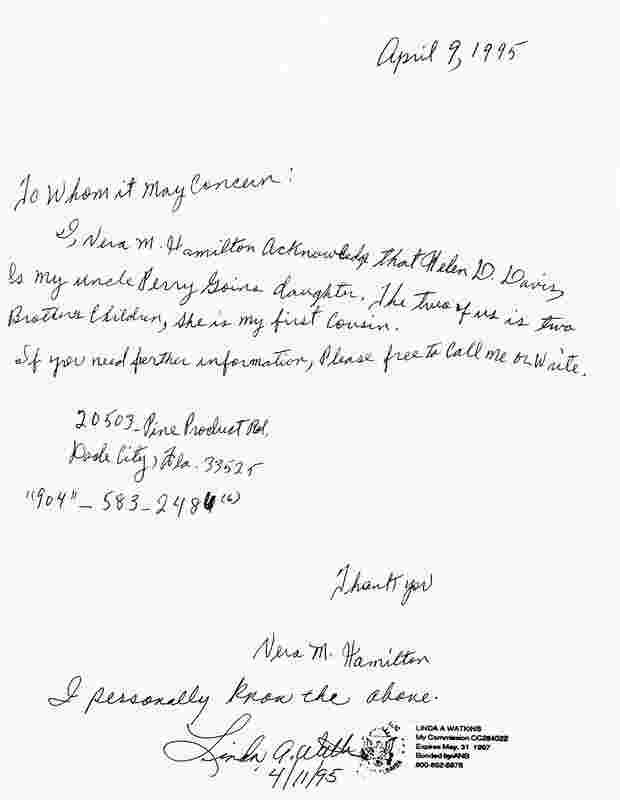 April 9, 1995
To Whom it May Concern:
I, Vera M. Hamilton Acknowledge that Helen D. Davis,
Is my uncle Perry Goins daughter. The two of us is two
Brothers Children, she is my first Cousin.
If you need further information, Please free to Call me or Write.
20503 - Pine Product Rd.
Dade City, Fla. 33525
"904" - 583 - 2486 (6)
Thank you
Vera M. Hamilton
I personally know the above.
Linda A. Watkins
4/11/95
LINDA A WATKINS
My Commission CC284022
Expires May. 31 1997
Bonded by ANB
800-852-5878